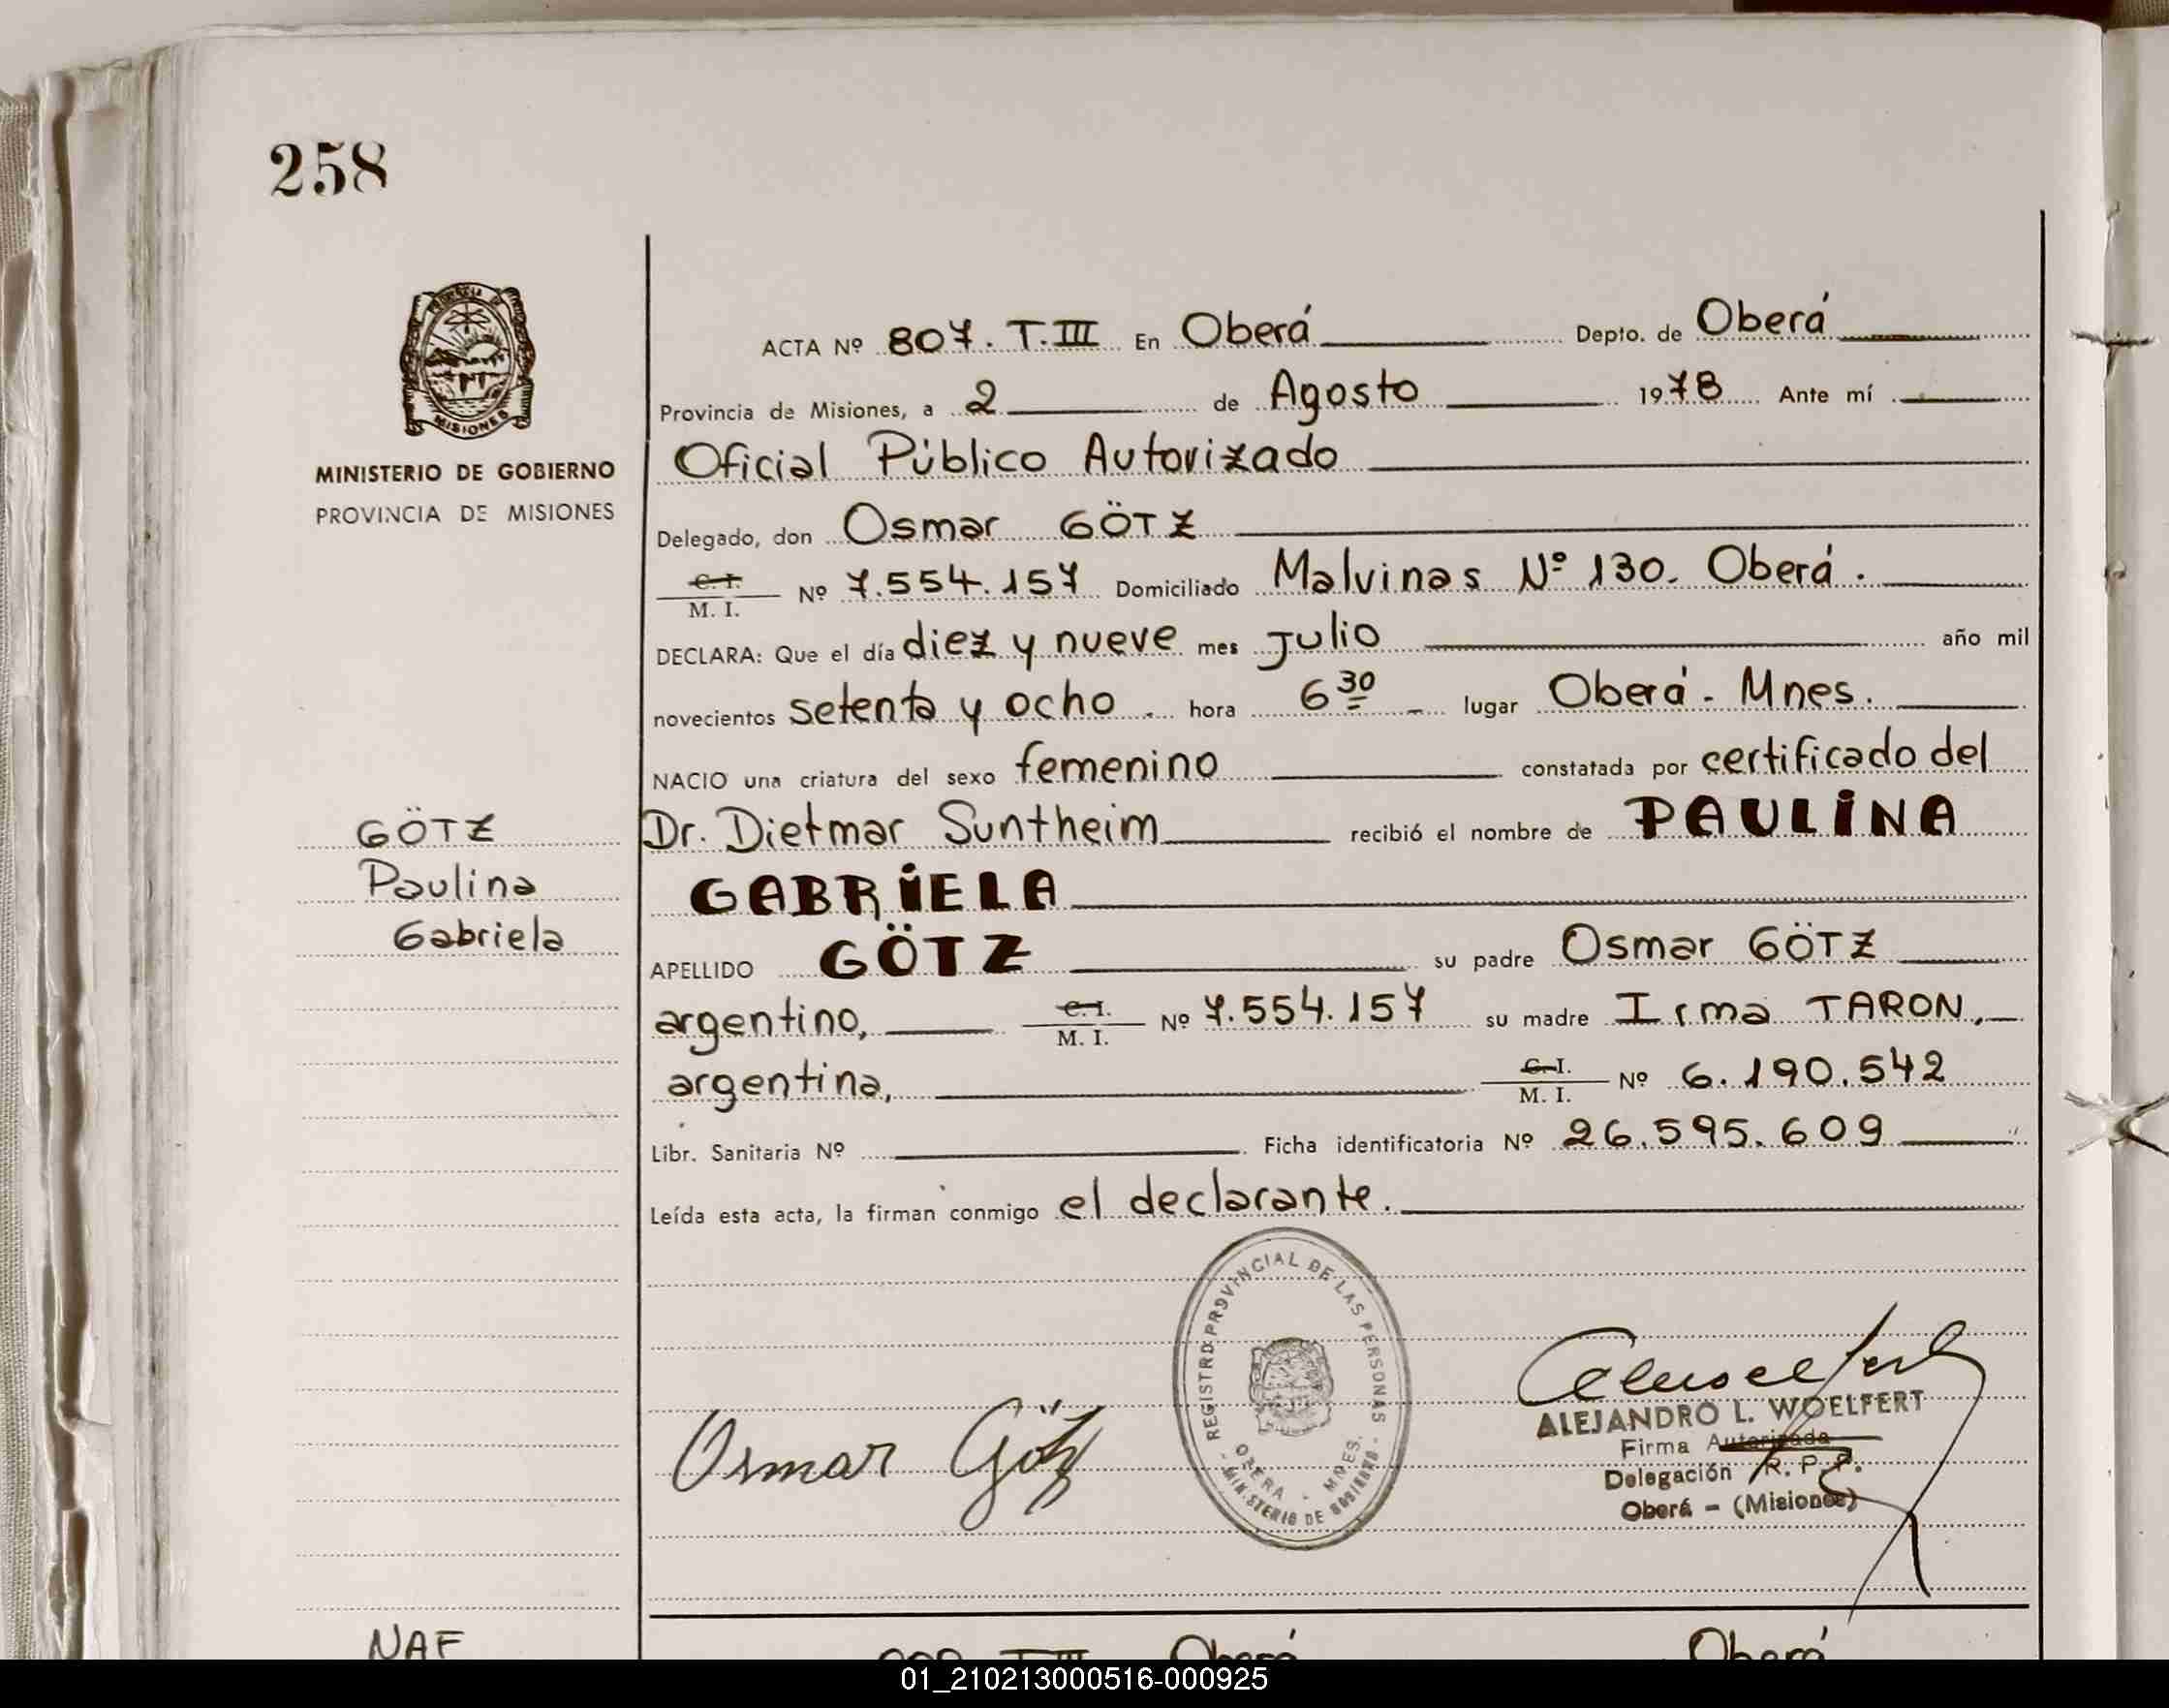 258
PROVINCIA DE
MISIONES
MINISTERIO DE GOBIERNO
PROVINCIA DE MISIONES
ACTA Nº 807. T.III En Oberá Depto. de Oberá
Provincia de Misiones, a 2 de Agosto 1978 Ante mí
Oficial Público Autorizado
Delegado, don Osmar GÖTZ
C. I.
M. I. Nº 7.554.157 Domiciliado Malvinas Nº 130. Oberá.
DECLARA: Que el día diez y nueve mes julio año mil
novecientos setenta y ocho. hora 6 30 lugar Oberá - Mnes.
NACIO una criatura del sexo femenino constatada por certificado del
Dr. Dietmar Suntheim recibió el nombre de PAULINA
GABRIELA
APELLIDO GÖTZ su padre Osmar GÖTZ
argentino, C. I.
M. I. Nº 7.554.157 su madre Irma TARON,
argentina, C. I.
M. I. Nº 6.190.542
Libr. Sanitaria Nº Ficha identificatoria Nº 26.595.609
Leída esta acta, la firman conmigo el declarante.
GÖTZ
Paulina
Gabriela
REGISTRO PROVINCIAL DE LAS PERSONAS
OBERA - MNES.
- MINISTERIO DE GOBIERNO -
Osmar Götz
ALEJANDRO L. WOELFERT
Firma Autorizada
Delegación R. P. P.
Oberá - (Misiones)
NAF
T.III Oberá Oberá
01_210213000516-000925